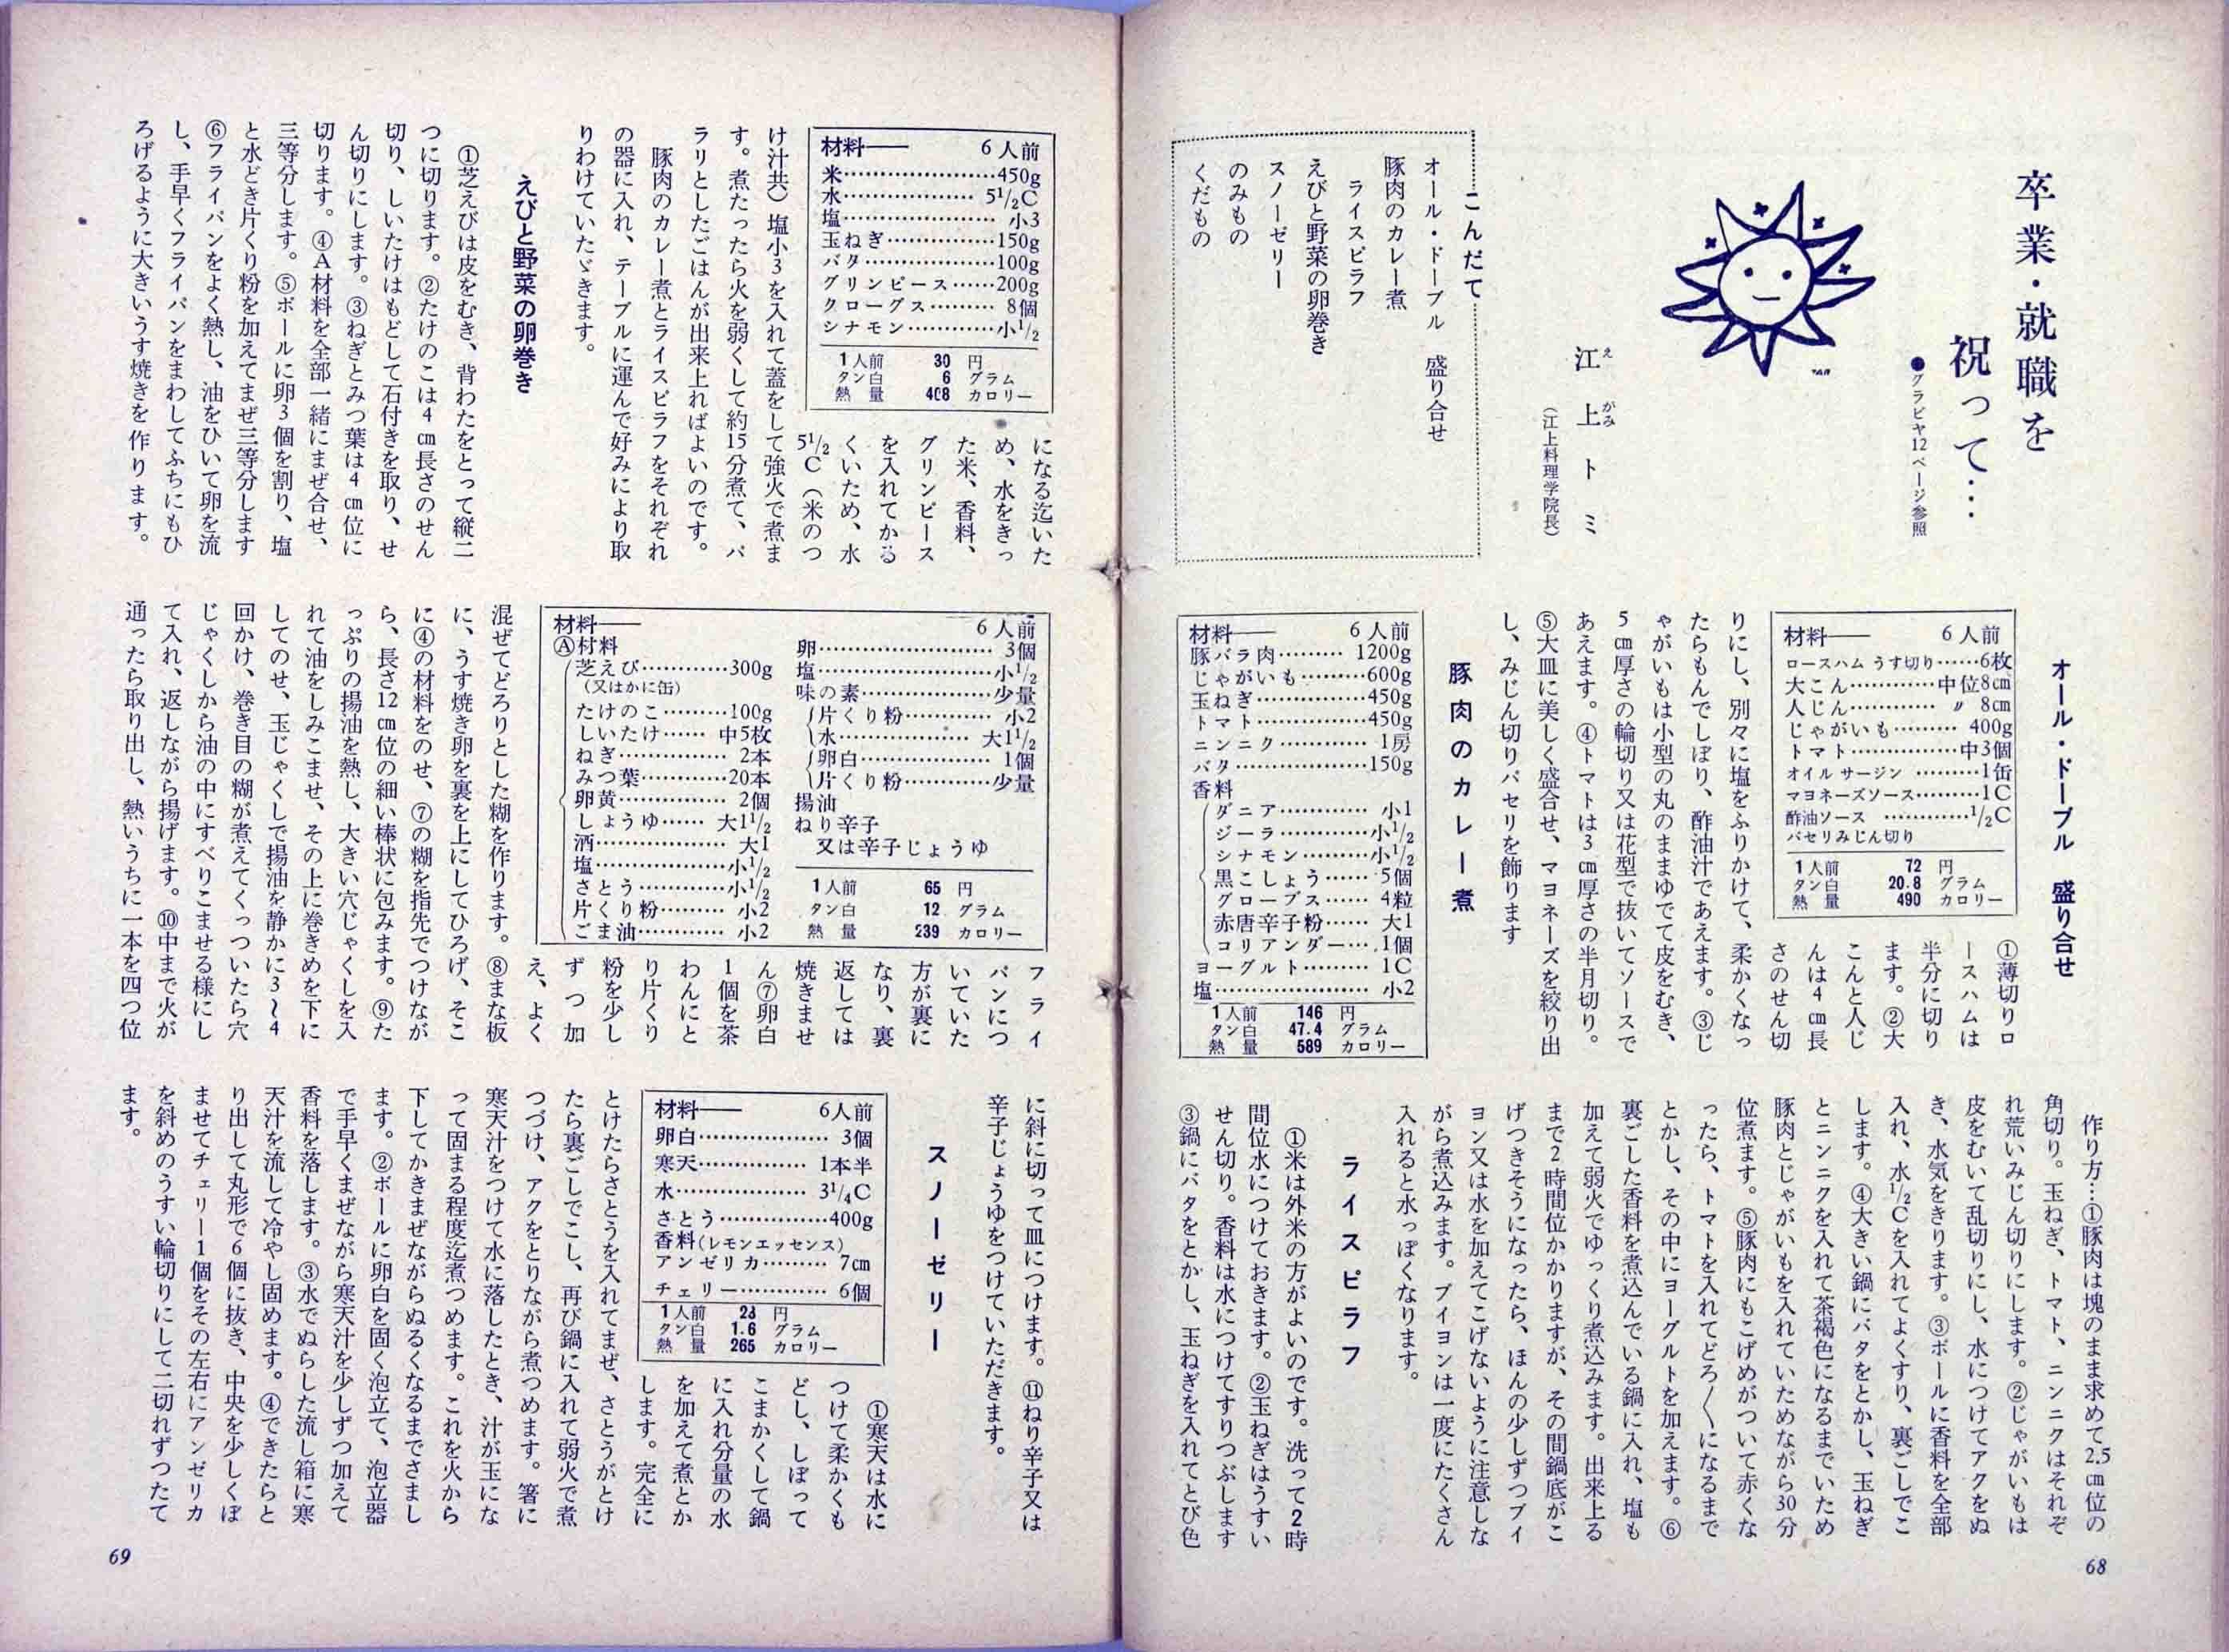 卒業・就職を
祝って…
●グラビヤ12ページ参照
江上トミ
えがみ
(江上料理学院長)
こんだて
オール・ドーブル　盛り合せ
豚肉のカレー煮
ライスピラフ
えびと野菜の卵巻き
スノーゼリー
のみもの
くだもの
オール・ドーブル　盛り合せ
材料── 6人前
ロースハム うす切り……6枚
大こん…………中位8cm
人じん…………〃 8cm
じゃがいも………400g
トマト……………中3個
オイルサージン………1缶
マヨネーズソース………1C
酢油ソース…………1/2C
パセリみじん切り
1人前 72 円
タン白 20.8 グラム
熱量 490 カロリー
①薄切りロ
ースハムは
半分に切り
ます。②大
こんと人じ
んは4cm長
さのせん切
りにし、別々に塩をふりかけて、柔かくなっ
たらもんでしぼり、酢油汁であえます。③じ
ゃがいもは小型の丸のままゆでて皮をむき、
5cm厚さの輪切り又は花型で抜いてソースで
あえます。④トマトは3cm厚さの半月切り。
⑤大皿に美しく盛合せ、マヨネーズを絞り出
し、みじん切りパセリを飾ります
豚肉のカレー煮
材料── 6人前
豚バラ肉………1200g
じゃがいも………600g
玉ねぎ……………450g
トマト……………450g
ニンニク…………1房
バタ………………150g
香料
ダニア…………小1
ジーラ…………小1/2
シナモン………小1/2
黒こしょう……5個
グローブス……4粒
赤唐辛子粉……大1
コリアンダー…1個
ヨーグルト………1C
塩…………………小2
1人前 146 円
タン白 47.4 グラム
熱量 589 カロリー
作り方…①豚肉は塊のまま求めて2.5cm位の
角切り。玉ねぎ、トマト、ニンニクはそれぞ
れ荒いみじん切りにします。②じゃがいもは
皮をむいて乱切りにし、水につけてアクをぬ
き、水気をきります。③ボールに香料を全部
入れ、水1/2Cを入れてよくすり、裏ごしでこ
します。④大きい鍋にバタをとかし、玉ねぎ
とニンニクを入れて茶褐色になるまでいため
豚肉とじゃがいもを入れていためながら30分
位煮ます。⑤豚肉にもこげめがついて赤くな
ったら、トマトを入れてどろ〳〵になるまで
とかし、その中にヨーグルトを加えます。⑥
裏ごした香料を煮込んでいる鍋に入れ、塩も
加えて弱火でゆっくり煮込みます。出来上る
まで2時間位かかりますが、その間鍋底がこ
げつきそうになったら、ほんの少しずつブイ
ヨン又は水を加えてこげないように注意しな
がら煮込みます。ブイヨンは一度にたくさん
入れると水っぽくなります。
ライスピラフ
①米は外米の方がよいのです。洗って2時
間位水につけておきます。②玉ねぎはうすい
せん切り。香料は水につけてすりつぶします
③鍋にバタをとかし、玉ねぎを入れてとび色
68
材料── 6人前
米…………………450g
水………………5 1/2C
塩…………………小3
玉ねぎ……………150g
バタ………………100g
グリンピース……200g
クローグス………8個
シナモン…………小1/2
1人前 30 円
タン白 6 グラム
熱量 408 カロリー
になる迄いた
め、水をきっ
た米、香料、
グリンピース
を入れてかる
くいため、水
5 1/2C（米のつ
け汁共）塩小3を入れて蓋をして強火で煮ま
す。煮たったら火を弱くして約15分煮て、パ
ラリとしたごはんが出来上ればよいのです。
豚肉のカレー煮とライスピラフをそれぞれ
の器に入れ、テーブルに運んで好みにより取
りわけていたゞきます。
えびと野菜の卵巻き
①芝えびは皮をむき、背わたをとって縦二
つに切ります。②たけのこは4cm長さのせん
切り、しいたけはもどして石付きを取り、せ
ん切りにします。③ねぎとみつ葉は4cm位に
切ります。④A材料を全部一緒にまぜ合せ、
三等分します。⑤ボールに卵3個を割り、塩
と水どき片くり粉を加えてまぜ三等分します
⑥フライパンをよく熱し、油をひいて卵を流
し、手早くフライパンをまわしてふちにもひ
ろげるように大きいうす焼きを作ります。
材料── 6人前
Ⓐ材料
芝えび…………300g
(又はかに缶)
たけのこ………100g
しいたけ……中5枚
ねぎ……………2本
みつ葉…………20本
卵黄……………2個
しょうゆ……大1 1/2
酒………………大1
塩………………小1/2
さとう…………小1/2
片くり粉………小2
ごま油…………小2
卵……………………3個
塩……………………小1/2
味の素………………少量
片くり粉…………小2
水………………大1 1/2
卵白………………1個
片くり粉…………少量
揚油
ねり辛子
又は辛子じょうゆ
1人前 65 円
タン白 12 グラム
熱量 239 カロリー
フライ
パンにつ
いていた
方が裏に
なり、裏
返しては
焼きませ
ん⑦卵白
1個を茶
わんにと
り片くり
粉を少し
ずつ加
え、よく
混ぜてどろりとした糊を作ります。⑧まな板
に、うす焼き卵を裏を上にしてひろげ、そこ
に④の材料をのせ、⑦の糊を指先でつけなが
ら、長さ12cm位の細い棒状に包みます。⑨た
っぷりの揚油を熱し、大きい穴じゃくしを入
れて油をしみこませ、その上に巻きめを下に
してのせ、玉じゃくしで揚油を静かに3〜4
回かけ、巻き目の糊が煮えてくっついたら穴
じゃくしから油の中にすべりこませる様にし
て入れ、返しながら揚げます。⑩中まで火が
通ったら取り出し、熱いうちに一本を四つ位
に斜に切って皿につけます。⑪ねり辛子又は
辛子じょうゆをつけていただきます。
スノーゼリー
材料── 6人前
卵白………………3個
寒天……………1本半
水………………3 1/4C
さとう……………400g
香料(レモンエッセンス)
アンゼリカ………7cm
チェリー…………6個
1人前 23 円
タン白 1.6 グラム
熱量 265 カロリー
①寒天は水に
つけて柔かくも
どし、しぼって
こまかくして鍋
に入れ分量の水
を加えて煮とか
します。完全に
とけたらさとうを入れてまぜ、さとうがとけ
たら裏ごしでこし、再び鍋に入れて弱火で煮
つづけ、アクをとりながら煮つめます。箸に
寒天汁をつけて水に落したとき、汁が玉にな
って固まる程度迄煮つめます。これを火から
下してかきまぜながらぬるくなるまでさまし
ます。②ボールに卵白を固く泡立て、泡立器
で手早くまぜながら寒天汁を少しずつ加えて
香料を落します。③水でぬらした流し箱に寒
天汁を流して冷やし固めます。④できたらと
り出して丸形で6個に抜き、中央を少しくぼ
ませてチェリー1個をその左右にアンゼリカ
を斜めのうすい輪切りにして二切れずつたて
ます。
69